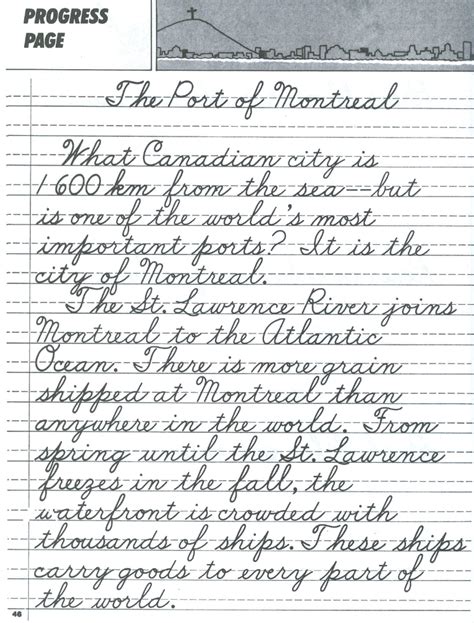 PROGRESS
PAGE
The Port of Montreal
What Canadian city is
1 600 km from the sea--but
is one of the world's most
important ports? It is the
city of Montreal.
The St. Lawrence River joins
Montreal to the Atlantic
Ocean. There is more grain
shipped at Montreal than
anywhere in the world. From
spring until the St. Lawrence
freezes in the fall, the
waterfront is crowded with
thousands of ships. These ships
carry goods to every part of
the world.
46